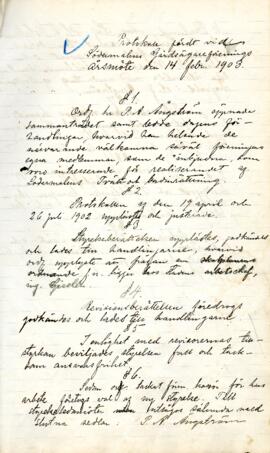 Protokoll fördt vid
Södermalms Gårdsägareförenings
årsmöte den 14 febr. 1903.
§ 1.
Ordf. hr P. A. Ångström öppnade
sammanträdet samt ledde dagens för-
handlingar hvarvid han helsade de
närvarande välkomna såväl föreningens
egna medlemmar, som de inbjudna, som
voro intresserade för realiserandet af
Södermalms badinrättning.
§ 2
Protokollen af den 17 april och
26 juli 1902 upplästes och justerade.
§ 3
Styrelseberättelsen upplästes, godkändes
och lades till handlingarne, hvarvid
ordf. upplyste att frågan om
för ligger hos arbetschef,
ing.
§ 4
Revisionsberättelsen föredrogs
godkändes och lades till handlingarne
§ 5
I enlighet med revisorernas till-
styrkan beviljades styrelsen full och tack-
sam ansvarsfrihet.
§ 6.
Sedan ordf. tackat för hans
arbete företogs val af ny styrelse. Till
styrelseledamöter valdes med
slutna sedlar. P. A. Ångström